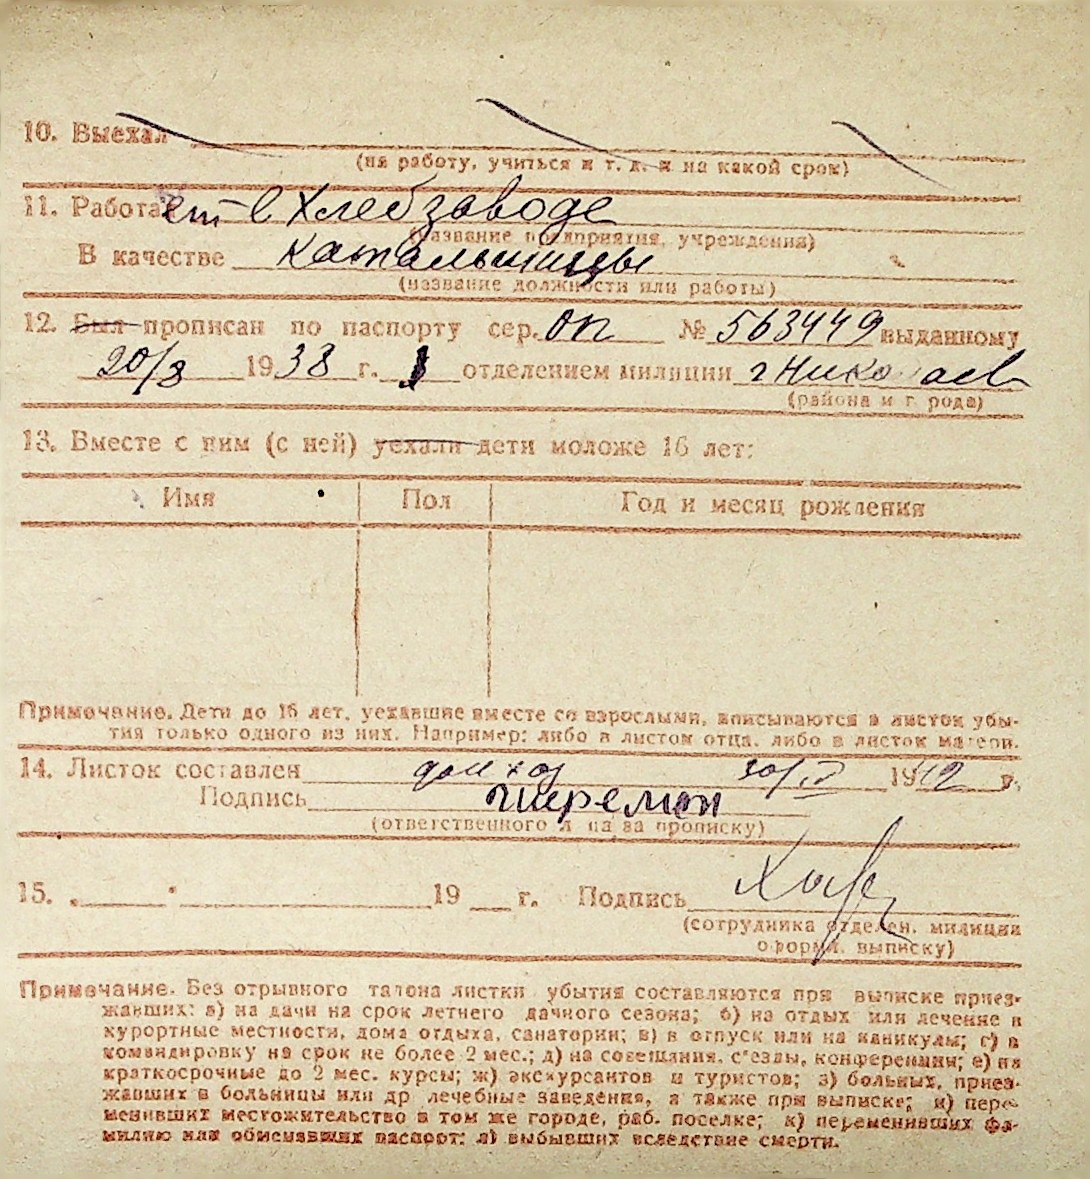 10. Выехал
(на работу, учиться и т. д. и на какой срок)
11. Работает в Хлебзаводе
(название предприятия, учреждения)
В качестве Катальщицы
(название должности или работы)
12. Был прописан по паспорту сер. ОП № 563449 выданному
20/8 1938 г. 1 отделением милиции г Николаев
(района и г рода)
13. Вместе с ним (с ней) уехали дети моложе 16 лет:
Имя Пол Год и месяц рождения
Примечание. Дети до 16 лет, уехавшие вместе со взрослыми, вписываются в листок убы-
тия только одного из них. Например: либо в листок отца, либо в листок матери.
14. Листок составлен 1942 г.
Подпись
(ответственного л ца за прописку)
15. 19 г. Подпись
(сотрудника отделен. милиции
оформ. выписку)
Примечание. Без отрывного талона листки убытия составляются при выписке приез-
жавших: а) на дачи на срок летнего дачного сезона; б) на отдых или лечение в
курортные местности, дома отдыха, санатории; в) в отпуск или на каникулы; г) в
командировку на срок не более 2 мес.; д) на совещания, с'езды, конференции; е) на
краткосрочные до 2 мес. курсы; ж) экскурсантов и туристов; з) больных, приез-
жавших в больницы или др лечебные заведения, а также при выписке; и) пере-
менивших местожительство в том же городе, раб. поселке; к) переменивших фа-
милию или обменявших паспорт; л) выбывших вследствие смерти.